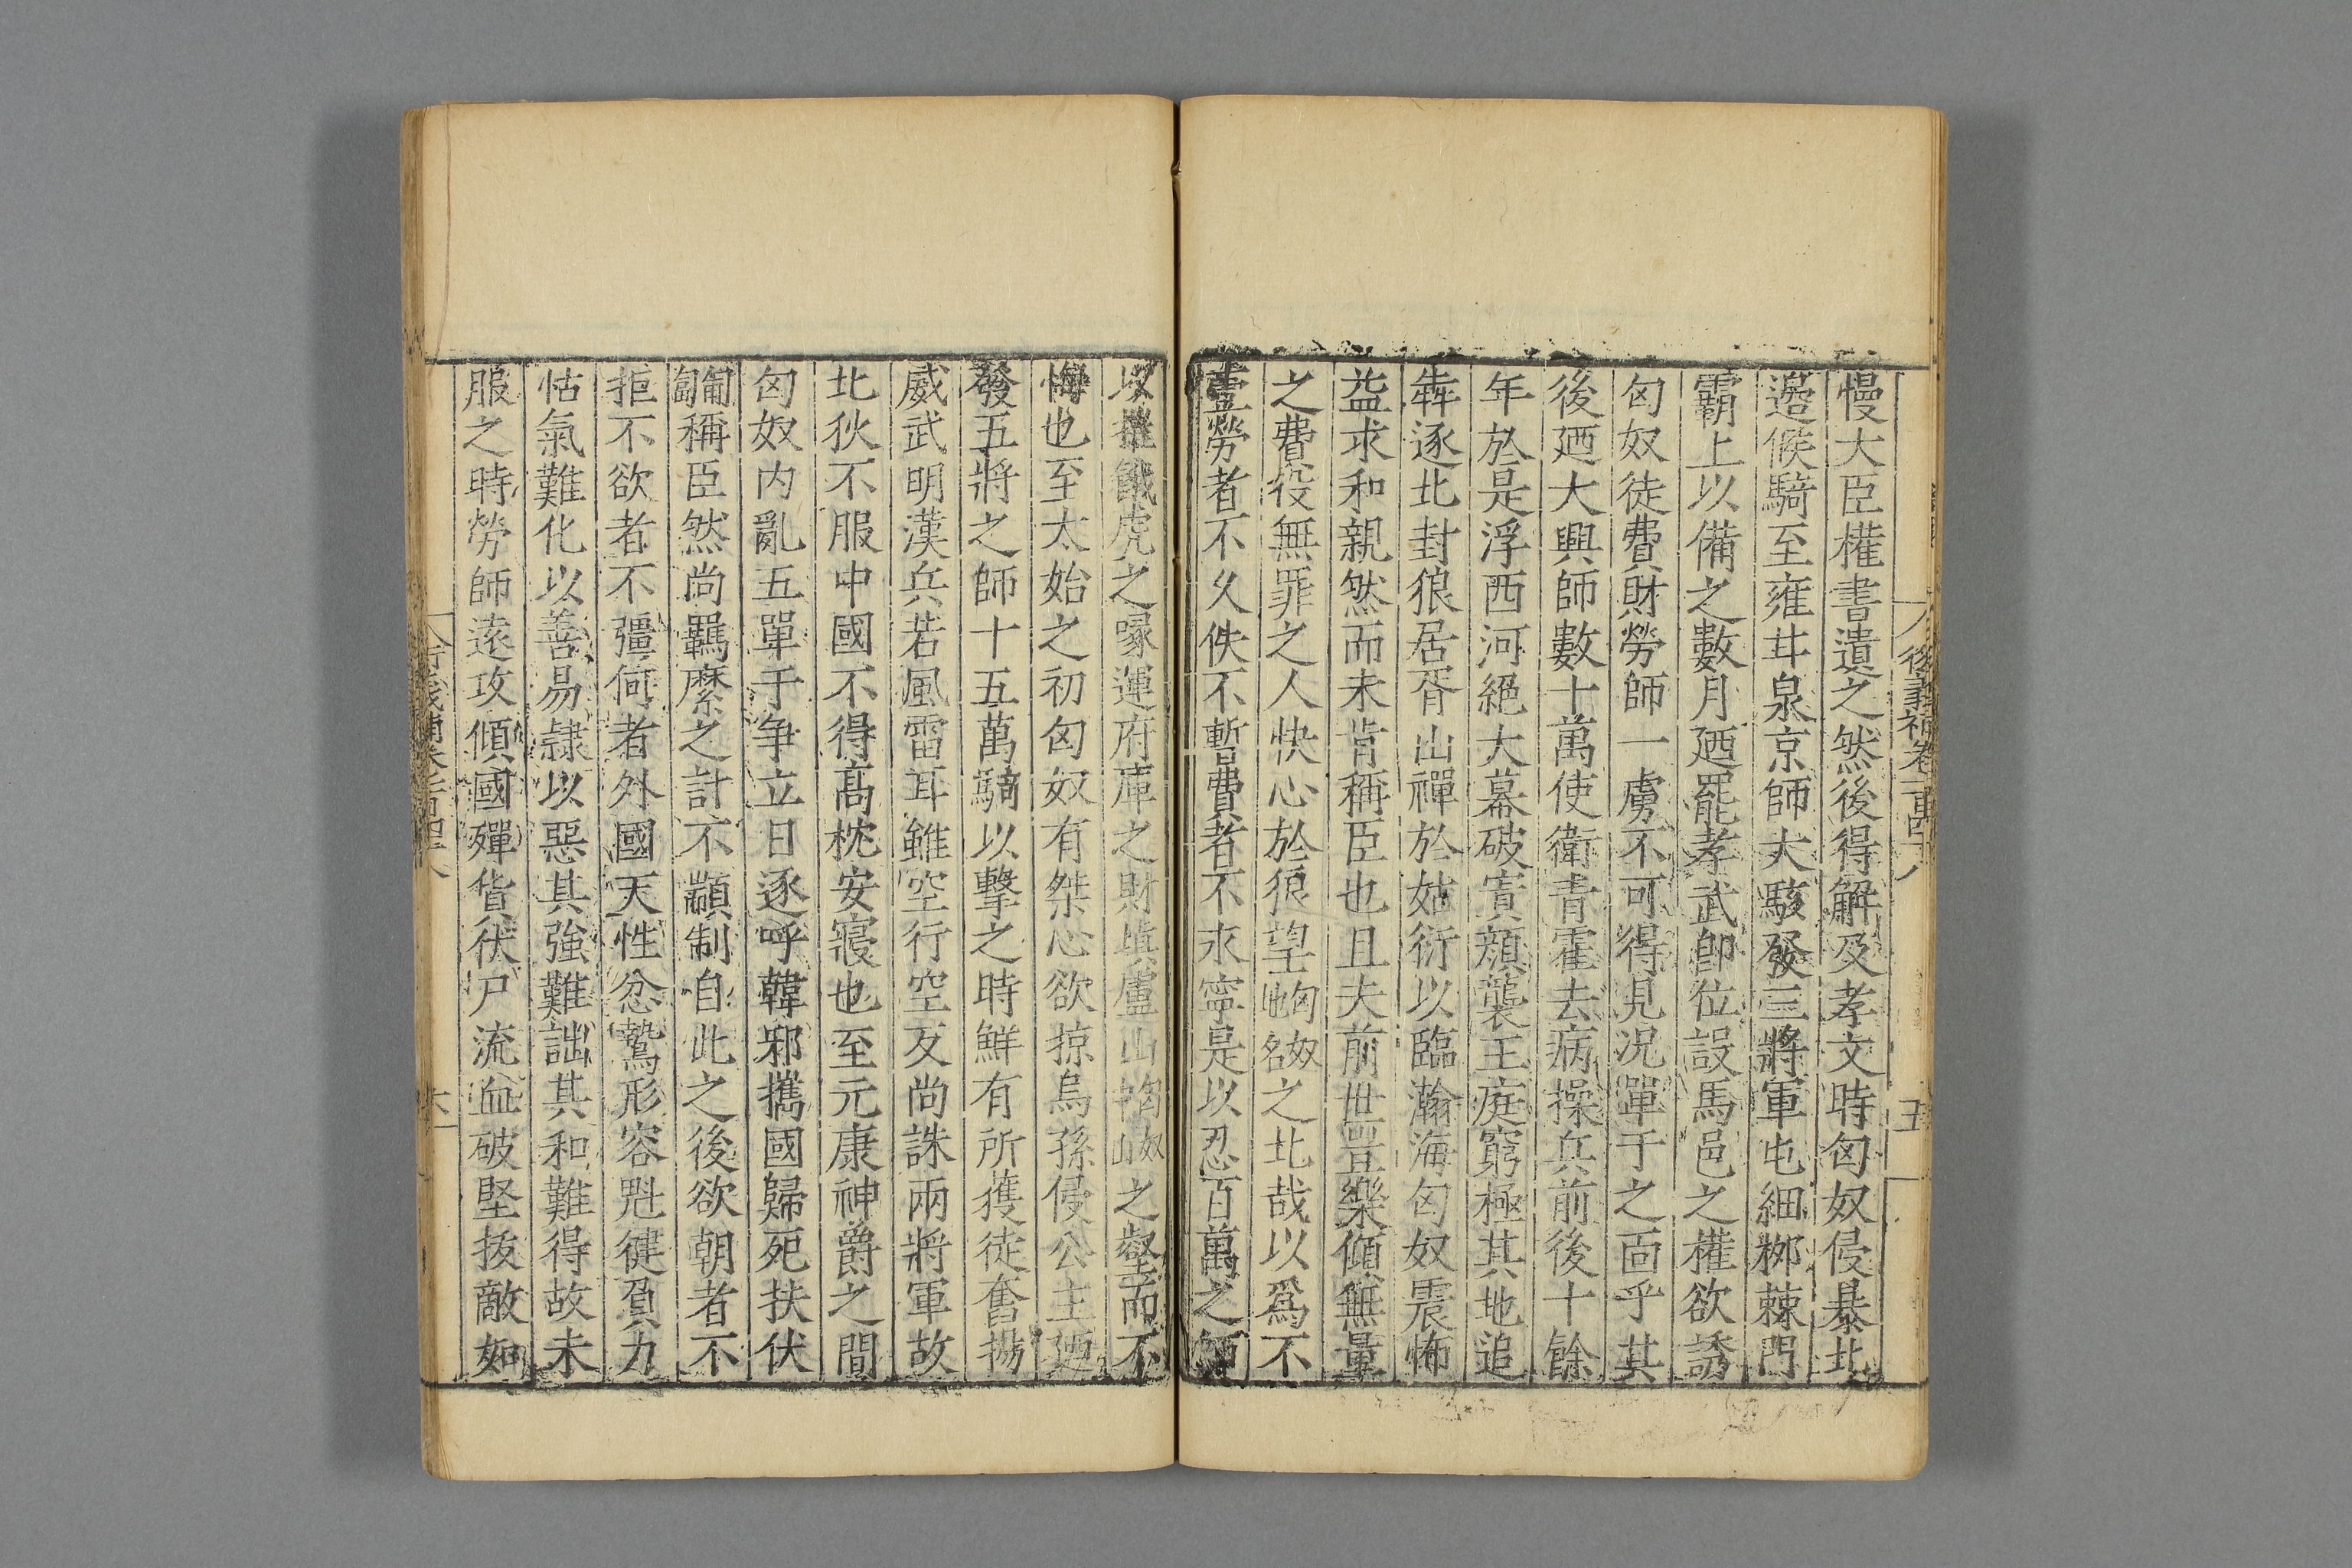 慢大臣權書遺之然後得解及孝文時匈奴侵暴北
邉候騎至雍甘泉京師大駭發三將軍屯細桺棘門
霸上以備之數月廼罷孝武卽位設馬邑之權欲誘
匈奴徒費財勞師一虜不可得見况單于之面乎其
後廼大興師數十萬使衛青霍去病操兵前後十餘
年於是浮西河絕大幕破寘顔襲王庭窮極其地追
犇逐北封狼居胥山禪於姑衍以臨瀚海匈奴震怖
益求和親然而未肯稱臣也且夫前世豈樂傾無量
之費役無罪之人快心於狼望之北哉以爲不
壹勞者不久佚不暫費者不永寧是以忍百萬之師
以摧餓虎之喙運府庫之財塡盧山之壑而不
悔也至太始之初匈奴有桀心欲掠烏孫侵公主廼
發五將之師十五萬騎以擊之時鮮有所獲徒奮揚
威武明漢兵若風雷耳雖空行空反尚誅兩將軍故
北狄不服中國不得高枕安寢也至元康神爵之間
匈奴内亂五單于争立日逐呼韓邪攜國歸死扶伏
稱臣然尚羈縻之計不顓制自此之後欲朝者不
拒不欲者不彊何者外國天性忿鷙形容魁健負力
怙氣難化以善易隷以惡其強難詘其和難得故未
服之時勞師遠攻傾國殫貨伏尸流血破堅拔敵如